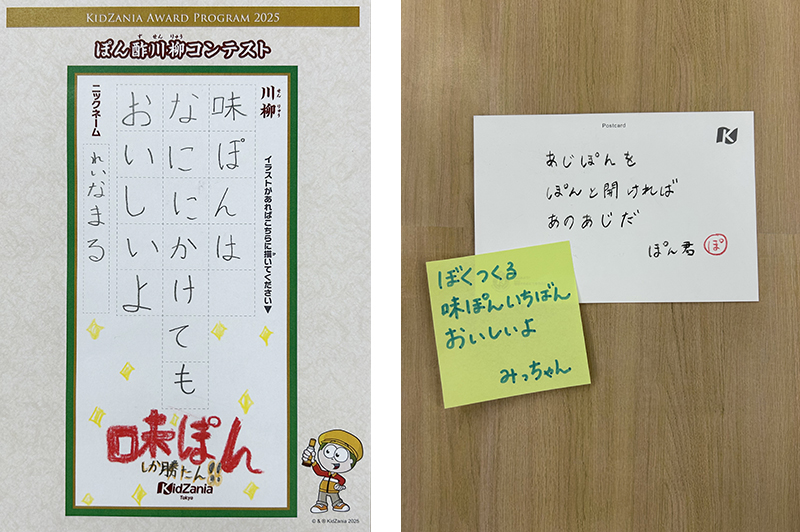 KIDZANIA AWARD PROGRAM 2025
ぽん酢川柳コンテスト
川柳
味ぽんは
なににかけても
おいしいよ
ニックネーム
れいなまる
イラストがあればこちらに描いてください▼
味ぽん
しか勝たん!!
KidZania
Tokyo
© & ® KidZania 2025
Postcard
K
あじぽんを
ぽんと開ければ
あのあじだ
ぽん君 ぽ
ぼくつくる
味ぽんいちばん
おいしいよ
みっちゃん